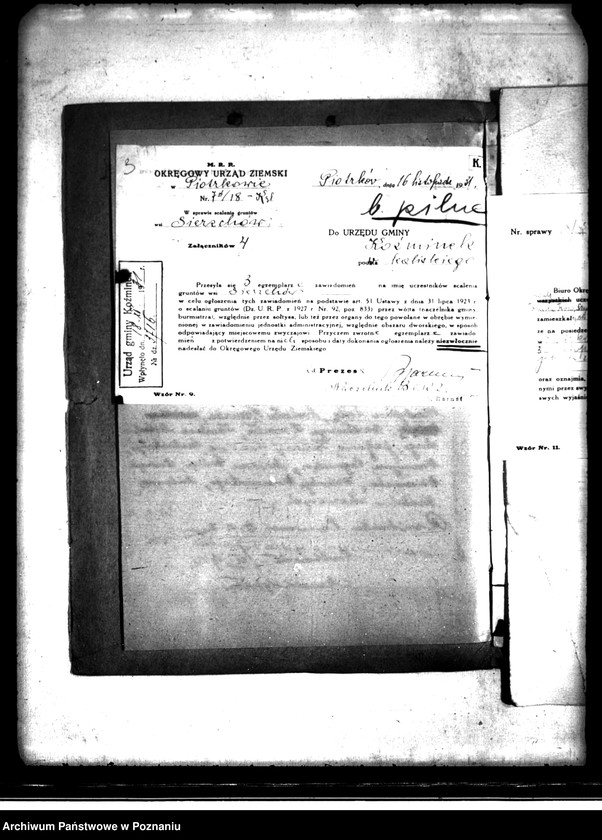 3
M. R. R.
OKRĘGOWY URZĄD ZIEMSKI
w Piotrkowie
W sprawie scalenia gruntów
wsi Sierzchowi
Załączników 4
K.
Piotrków, dnia 16 listopada 1931.
b. pilne
Do URZĘDU GMINY
Koźminek
kaliskiego
Przesyła się 3 egzemplarz zawiadomień na imię uczestników scalenia
gruntów wsi Sierzchów
w celu ogłoszenia tych zawiadomień na podstawie art. 51 Ustawy z dnia 31 lipca 1923 r.
o scalaniu gruntów (Dz. U. R. P. z 1927 r. Nr. 92, poz. 833) przez wójta (naczelnika gminy,
burmistrza), względnie przez sołtysa, lub też przez organy do tego powołane w obrębie wymie-
nionej w zawiadomieniu jednostki administracyjnej, względnie obszaru dworskiego, w sposób
odpowiadający miejscowemu zwyczajowi. Przyczem zwrotne egzemplarze zawiado-
mień z potwierdzeniem na nich sposobu i daty dokonania ogłoszenia należy niezwłocznie
nadesłać do Okręgowego Urzędu Ziemskiego
Prezes:
Wzór Nr. 9.
Urząd gminy Koźminek
Wpłynęło dn.
№ dz.
Nr. sprawy
Biuro Okrę
zamieszkał
re na posiedze
oraz oznajmia,
nymi przez swy
swych wyjaśnie
Wzór Nr. 11.
Archiwum Państwowe w Poznaniu